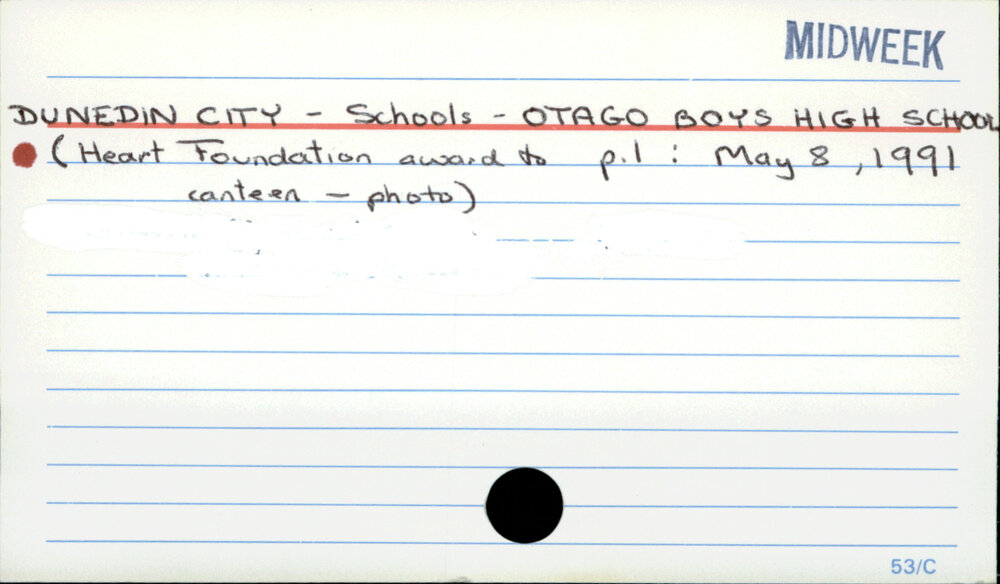 MIDWEEK
DUNEDIN CITY - Schools - OTAGO BOYS HIGH SCHOOL
(Heart Foundation award to p.1 : May 8, 1991
canteen - photo)
53/C